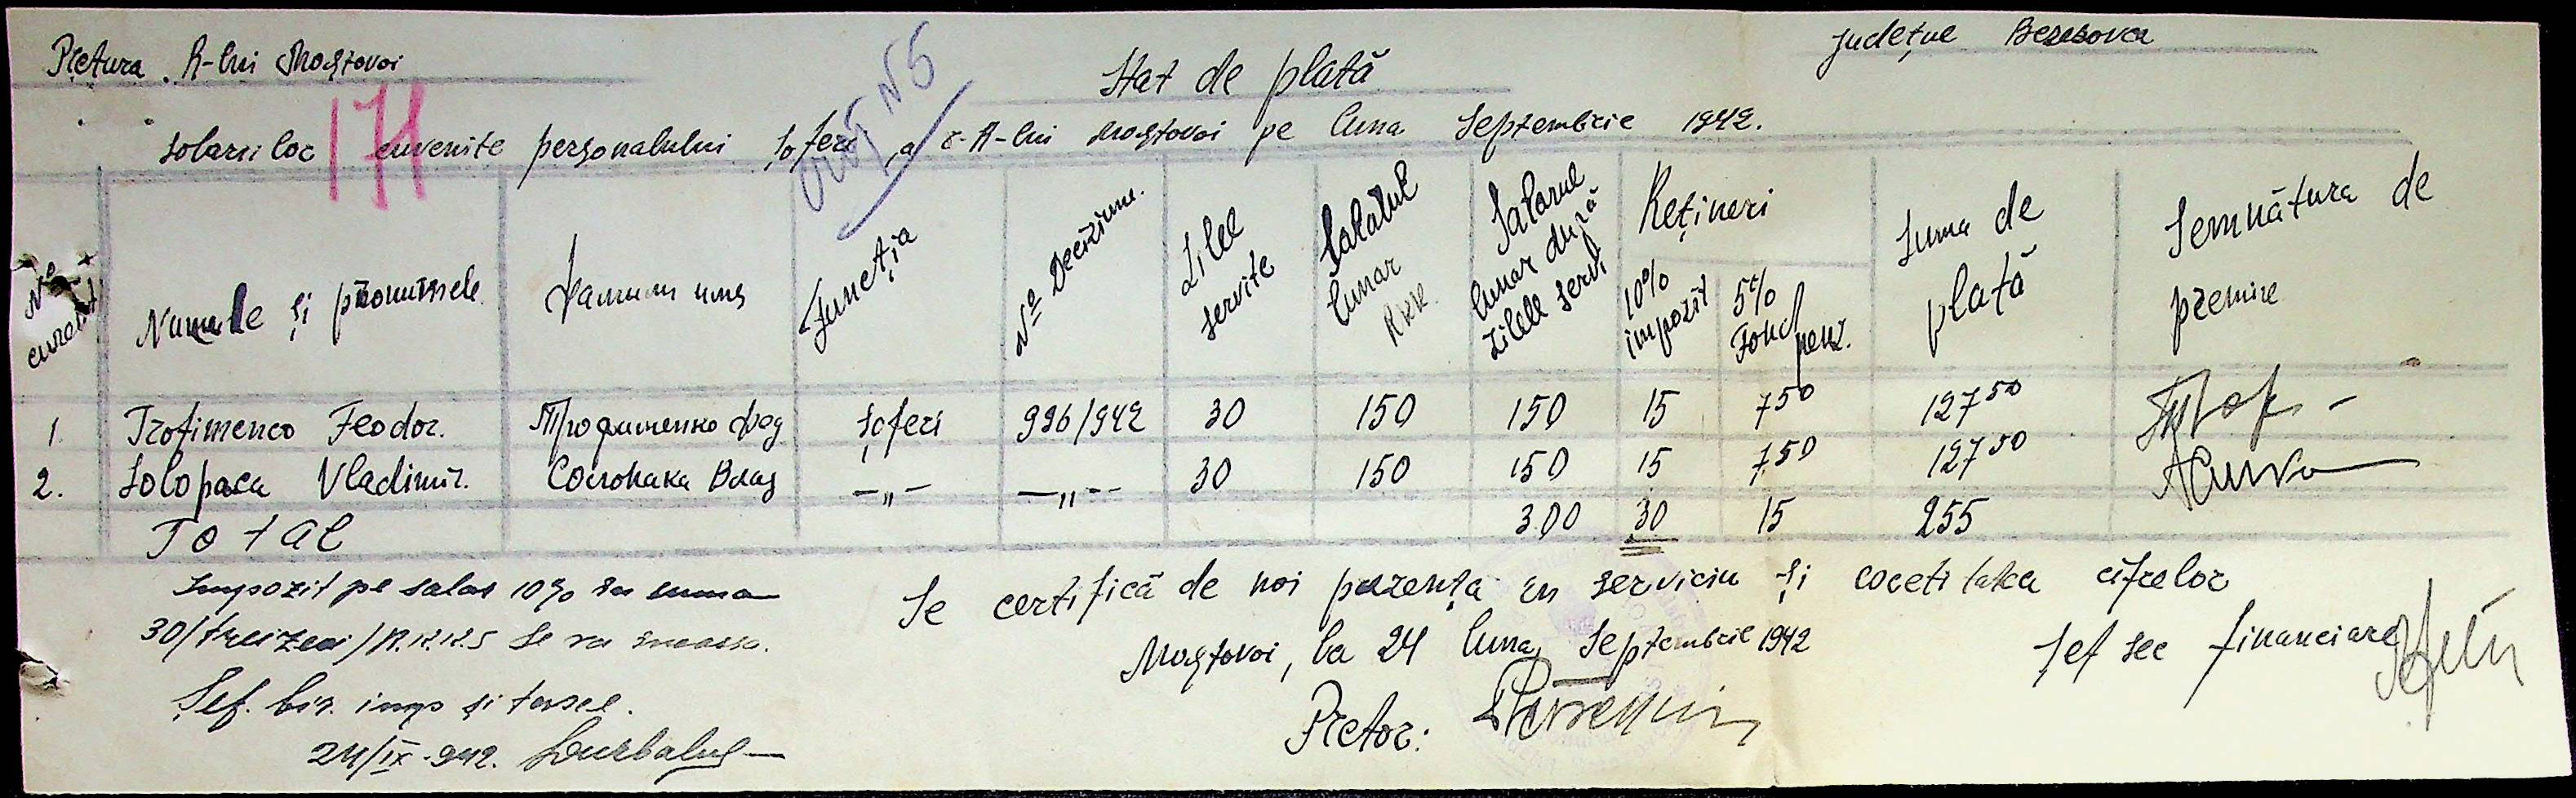 Pretura R-lui Mostovoi
Județul Berezovca
Stat de plată
salariilor cuvenite personalului șoferi a R-lui Mostovoi pe luna Septembrie 1942.
171
№ curent
Numele și pronumele
Функția
Funcția
№ Deciziune.
Zilele servite
Salarul lunar RKK.
Salarul lunar după zilele servi
Rețineri
10% impozit
5% Fond pens.
Suma de plată
Semnătura de premire
1. Trofimenco Feodor. Трофименко Фед șoferi 996/942 30 150 150 15 7 50 127 50
2. Solopaca Vladimir. Солопака Влад —„— —„— 30 150 150 15 7 50 127 50
Total 300 30 15 255
Impozit pe salar 10% în suma
30/treizeci/R.K.K.S se va încassa.
Șef. bir. imp și taxe.
24/IX-942.
Se certifică de noi prezența în serviciu și corectitatea cifrelor
Mostovoi, la 24 luna Septembrie 1942
Pretor:
Șef sec financiare